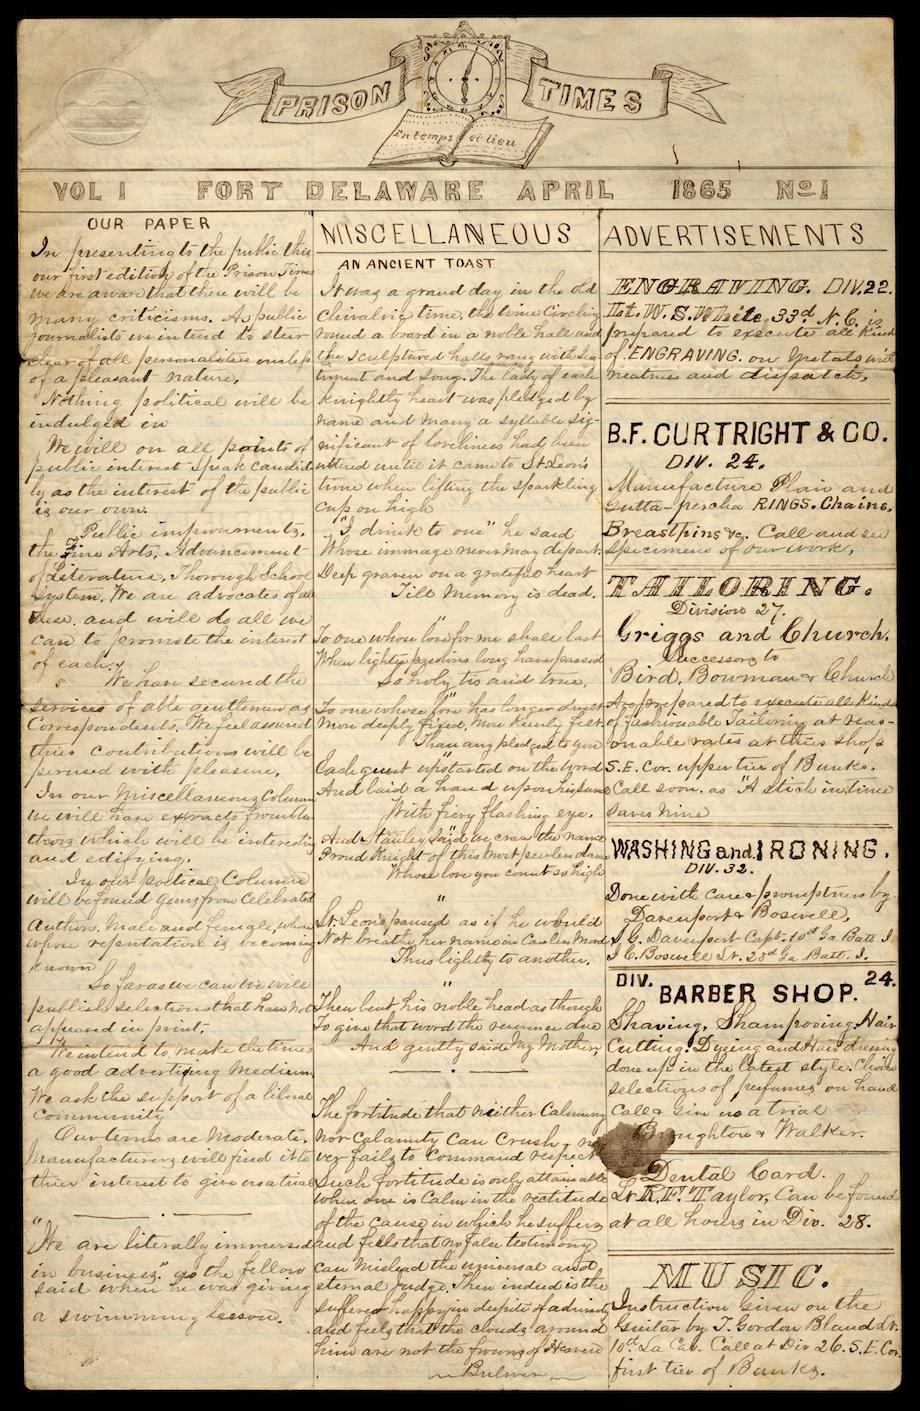 PRISON TIMES
En temps et lieu
VOL 1 FORT DELAWARE APRIL 1865 No 1
OUR PAPER
In presenting to the public this
our first edition of the Prison Times
we are aware that there will be
many criticisms. As public
journalists we intend to steer
clear of all personalities unless
of a pleasant nature.
Nothing political will be
indulged in
We will on all points of
public interest speak candid
ly as the interest of the public
is our own.
Public improvments.
the Fine Arts, Advancement
of Literature, Thorough School
System. We are advocates of all
these. and will do all we
can to promote the interest
of each.
We have secured the
services of able gentlemen as
Correspondents. We feel assured
thier contributions will be
perused with pleasure.
In our Miscellaneous Column
we will have extracts from Au
thors which will be interesting
and edifying.
In our poetical Column
will be found gems from Celebrated
Authors, Male and female, whose
reputation is becoming
known
So far as we can we will
publish selections that have not
appeared in print.
We intend to make the times
a good advertising Medium.
We ask the support of a liberal
Community
Our terms are Moderate.
Manufacturers will find it to
thier interest to give us a trial
"We are literally immersed
in business" as the fellow
said when he was giving
a swimming lesson.
MISCELLANEOUS
AN ANCIENT TOAST
It was a grand day in the old
Chivalric time, the wine Circling
round a board in a noble hall and
the sculptured halls rang with Sen
timent and Song. The lady of each
Knightly heart was pledged by
name and Many a syllable sig-
nificant of loveliness had been
uttered until it came to St Leon's
time when lifting the sparkling
Cup on high
"I drink to one" he said
Whose immage never may depart.
Deep graven on a grateful heart
Till Memory is dead.
"
To one whose love for me shall last
When lighter passions long have passed
So holy tis and true,
"
To one whose love has longer dwelt
More deeply fixed, More keenly felt
Than any pledged to you
Each guest upstarted on the word
And laid a hand upon his sword
With fiery flashing eye.
"
And Stanley said, We crave the name
Proud Knight of this most peerless dame
Whose love you count so high
"
St. Leon paused as if he would
Not breathe her name in Careless Mood
Thus lightly to another.
"
Then bent his noble head as though
To give that word the reverence due
And gently said My Mother.
The fortitude that neither Calumny
nor Calamity Can Crush, ne
ver fails to Command respect
Such fortitude is only attainable
when one is Calm in the rectitude
of the cause in which he suffers
and feels that no false testimony
can mislead the universal and
eternal Judge. Then indeed is the
sufferer happy in despite of adversity
and feels that the clouds around
him are not the frowns of Heaven
Bulwer
ADVERTISEMENTS
ENGRAVING. DIV. 22.
Lt. W. S. White, 33d N.C. is
prepared to execute all kind
of ENGRAVING. on Metals with
neatness and dispatch,
B.F. CURTRIGHT & CO.
DIV. 24.
Manufacture Plain and
Gutta-percha RINGS. Chains.
Breastpins &c. Call and see
specimens of our work,
TAILORING.
Division 27.
Griggs and Church.
Successors to
Bird, Bowman & Church
Are prepared to execute all kind
of fashionable Tailoring at reas-
onable rates at thier shop
S.E. Cor. upper tier of Bunks.
Call soon. as "A stich in time
saves nine
WASHING and IRONING.
DIV. 32.
Done with care & promptness by
Davenport & Boswell,
S G. Davenport Capt. 10th Ga Batt I
J C. Boswell Lt. 23d Ga. Batt. I.
DIV. BARBER SHOP. 24.
Shaving, Shampooing, Hair
Cutting, Dyeing and Hair dressing
done up in the latest style. Choice
selections of perfumes on hand
Call & Give us a trial
Broughton & Walker.
Dental Card.
Lt R.F. Taylor, Can be found
at all hours in Div. 28.
MUSIC.
Instruction Given on the
Guitar by T. Gordon Bland Lt.
10th La Cav. Call at Div 26. S.E. Cor.
first tier of Bunks.